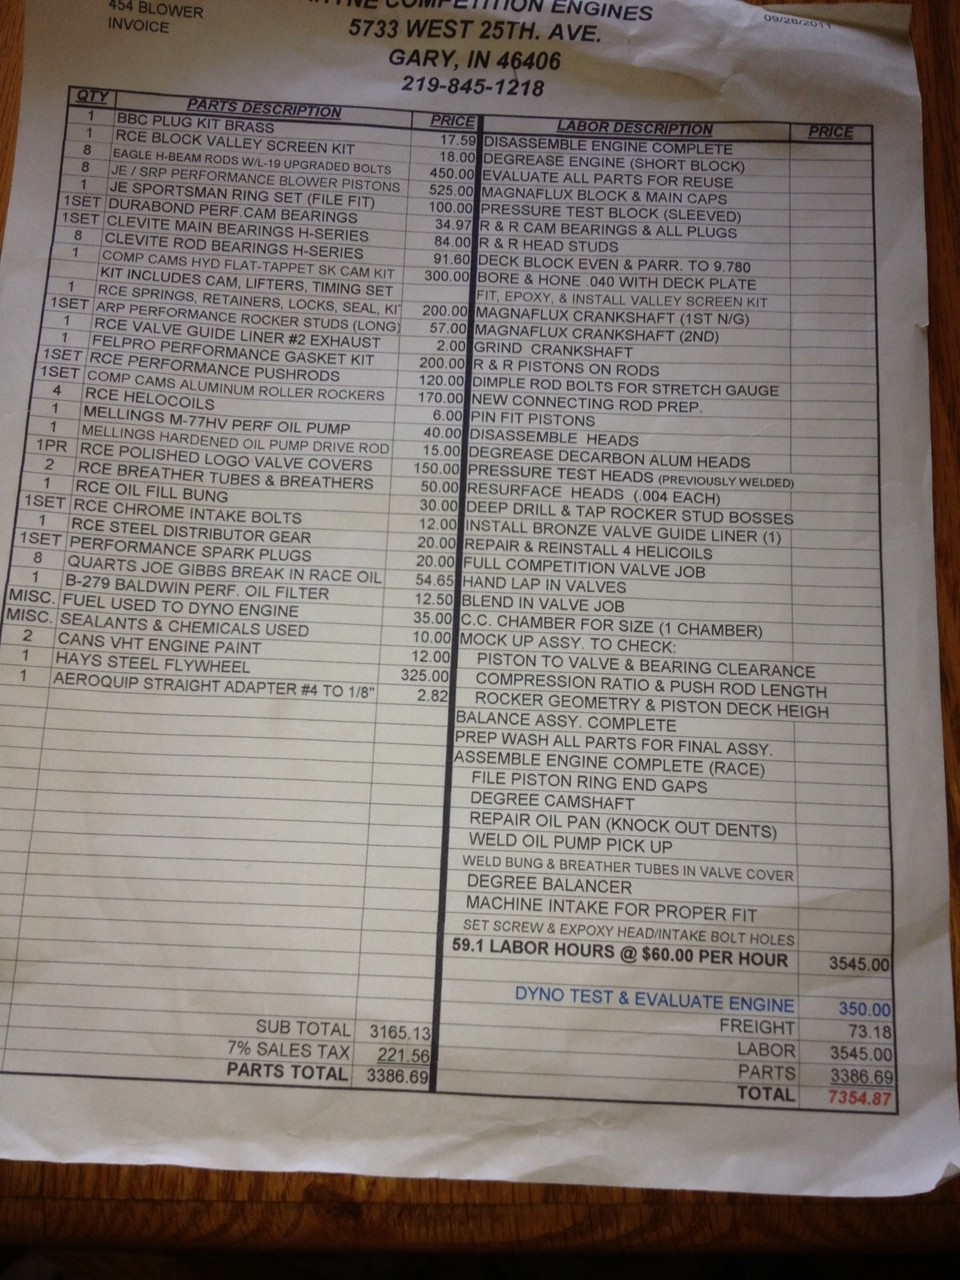 454 BLOWER
INVOICE
COMPETITION ENGINES
5733 WEST 25TH. AVE.
GARY, IN 46406
219-845-1218
09/28/2011
QTY PARTS DESCRIPTION PRICE
1 BBC PLUG KIT BRASS 17.59
1 RCE BLOCK VALLEY SCREEN KIT 18.00
8 EAGLE H-BEAM RODS W/L-19 UPGRADED BOLTS 450.00
8 JE / SRP PERFORMANCE BLOWER PISTONS 525.00
1 JE SPORTSMAN RING SET (FILE FIT) 100.00
1SET DURABOND PERF.CAM BEARINGS 34.97
1SET CLEVITE MAIN BEARINGS H-SERIES 84.00
8 CLEVITE ROD BEARINGS H-SERIES 91.60
1 COMP CAMS HYD FLAT-TAPPET SK CAM KIT 300.00
KIT INCLUDES CAM, LIFTERS, TIMING SET
1 RCE SPRINGS, RETAINERS, LOCKS, SEAL, KIT 200.00
1SET ARP PERFORMANCE ROCKER STUDS (LONG) 57.00
1 RCE VALVE GUIDE LINER #2 EXHAUST 2.00
1 FELPRO PERFORMANCE GASKET KIT 200.00
1SET RCE PERFORMANCE PUSHRODS 120.00
1SET COMP CAMS ALUMINUM ROLLER ROCKERS 170.00
4 RCE HELOCOILS 6.00
1 MELLINGS M-77HV PERF OIL PUMP 40.00
1 MELLINGS HARDENED OIL PUMP DRIVE ROD 15.00
1PR RCE POLISHED LOGO VALVE COVERS 150.00
2 RCE BREATHER TUBES & BREATHERS 50.00
1 RCE OIL FILL BUNG 30.00
1SET RCE CHROME INTAKE BOLTS 12.00
1 RCE STEEL DISTRIBUTOR GEAR 20.00
1SET PERFORMANCE SPARK PLUGS 20.00
8 QUARTS JOE GIBBS BREAK IN RACE OIL 54.65
1 B-279 BALDWIN PERF. OIL FILTER 12.50
MISC. FUEL USED TO DYNO ENGINE 35.00
MISC. SEALANTS & CHEMICALS USED 10.00
2 CANS VHT ENGINE PAINT 12.00
1 HAYS STEEL FLYWHEEL 325.00
1 AEROQUIP STRAIGHT ADAPTER #4 TO 1/8" 2.82
SUB TOTAL 3165.13
7% SALES TAX 221.56
PARTS TOTAL 3386.69
LABOR DESCRIPTION PRICE
DISASSEMBLE ENGINE COMPLETE
DEGREASE ENGINE (SHORT BLOCK)
EVALUATE ALL PARTS FOR REUSE
MAGNAFLUX BLOCK & MAIN CAPS
PRESSURE TEST BLOCK (SLEEVED)
R & R CAM BEARINGS & ALL PLUGS
R & R HEAD STUDS
DECK BLOCK EVEN & PARR. TO 9.780
BORE & HONE .040 WITH DECK PLATE
FIT, EPOXY, & INSTALL VALLEY SCREEN KIT
MAGNAFLUX CRANKSHAFT (1ST N/G)
MAGNAFLUX CRANKSHAFT (2ND)
GRIND CRANKSHAFT
R & R PISTONS ON RODS
DIMPLE ROD BOLTS FOR STRETCH GAUGE
NEW CONNECTING ROD PREP.
PIN FIT PISTONS
DISASSEMBLE HEADS
DEGREASE DECARBON ALUM HEADS
PRESSURE TEST HEADS (PREVIOUSLY WELDED)
RESURFACE HEADS (.004 EACH)
DEEP DRILL & TAP ROCKER STUD BOSSES
INSTALL BRONZE VALVE GUIDE LINER (1)
REPAIR & REINSTALL 4 HELICOILS
FULL COMPETITION VALVE JOB
HAND LAP IN VALVES
BLEND IN VALVE JOB
C.C. CHAMBER FOR SIZE (1 CHAMBER)
MOCK UP ASSY. TO CHECK:
PISTON TO VALVE & BEARING CLEARANCE
COMPRESSION RATIO & PUSH ROD LENGTH
ROCKER GEOMETRY & PISTON DECK HEIGH
BALANCE ASSY. COMPLETE
PREP WASH ALL PARTS FOR FINAL ASSY.
ASSEMBLE ENGINE COMPLETE (RACE)
FILE PISTON RING END GAPS
DEGREE CAMSHAFT
REPAIR OIL PAN (KNOCK OUT DENTS)
WELD OIL PUMP PICK UP
WELD BUNG & BREATHER TUBES IN VALVE COVER
DEGREE BALANCER
MACHINE INTAKE FOR PROPER FIT
SET SCREW & EXPOXY HEAD/INTAKE BOLT HOLES
59.1 LABOR HOURS @ $60.00 PER HOUR 3545.00
DYNO TEST & EVALUATE ENGINE 350.00
FREIGHT 73.18
LABOR 3545.00
PARTS 3386.69
TOTAL 7354.87